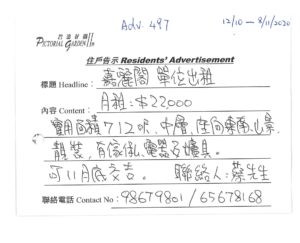 Adv. 487
12/10 – 8/11/2020
碧濤花園II期
PICTORIAL GARDEN II
住戶告示 Residents' Advertisement
標題 Headline : 嘉麗閣 單位出租
內容 Content : 月租:$22000
實用面積 712呎, 中層, 座向東南, 山景,
靚裝, 有傢俬, 電器及爐具。
可11月底交吉。 聯絡人:蔡先生
聯絡電話 Contact No : 98679801 / 65678168